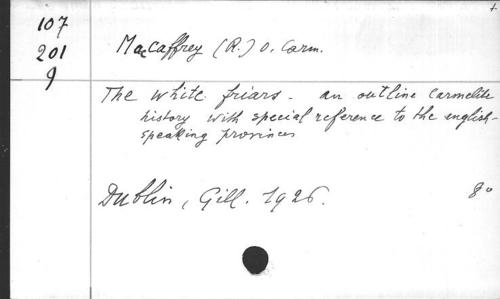 107
201
9
MacCaffrey (R.) O. Carm.
The white friars - an outline Carmelite
history with special reference to the english-
speaking provinces
Dublin, Gill. 1926. 8°